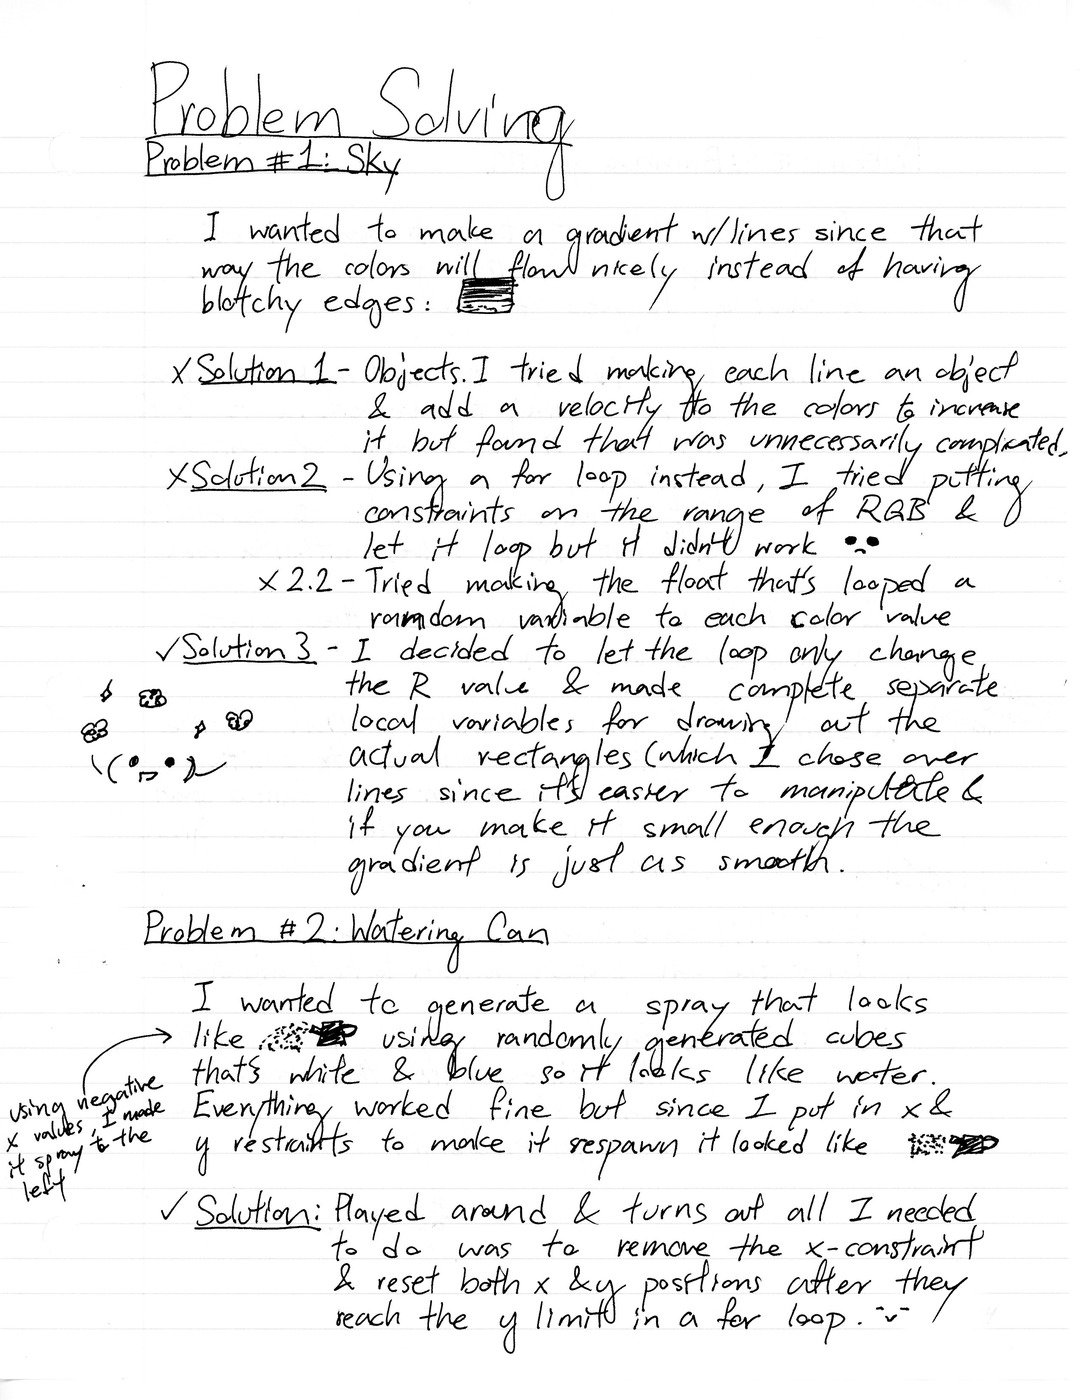 Problem Solving
Problem #1: Sky
I wanted to make a gradient w/lines since that
way the colors will flow nicely instead of having
blotchy edges:
x Solution 1 - Objects. I tried making each line an object
& add a velocity to the colors to increase
it but found that was unnecessarily complicated.
x Solution 2 - Using a for loop instead, I tried putting
constraints on the range of RGB &
let it loop but it didn't work
x 2.2 - Tried making the float that's looped a
random variable to each color value
✓ Solution 3 - I decided to let the loop only change
the R value & made complete separate
local variables for drawing out the
actual rectangles (which I chose over
lines since it's easier to manipulate &
if you make it small enough the
gradient is just as smooth.
Problem #2: Watering Can
I wanted to generate a spray that looks
like using randomly generated cubes
that's white & blue so it looks like water.
Everything worked fine but since I put in x &
y restraints to make it respawn it looked like
using negative
x values, I made
it spray to the
left
✓ Solution: Played around & turns out all I needed
to do was to remove the x-constraint
& reset both x & y positions after they
reach the y limit in a for loop.